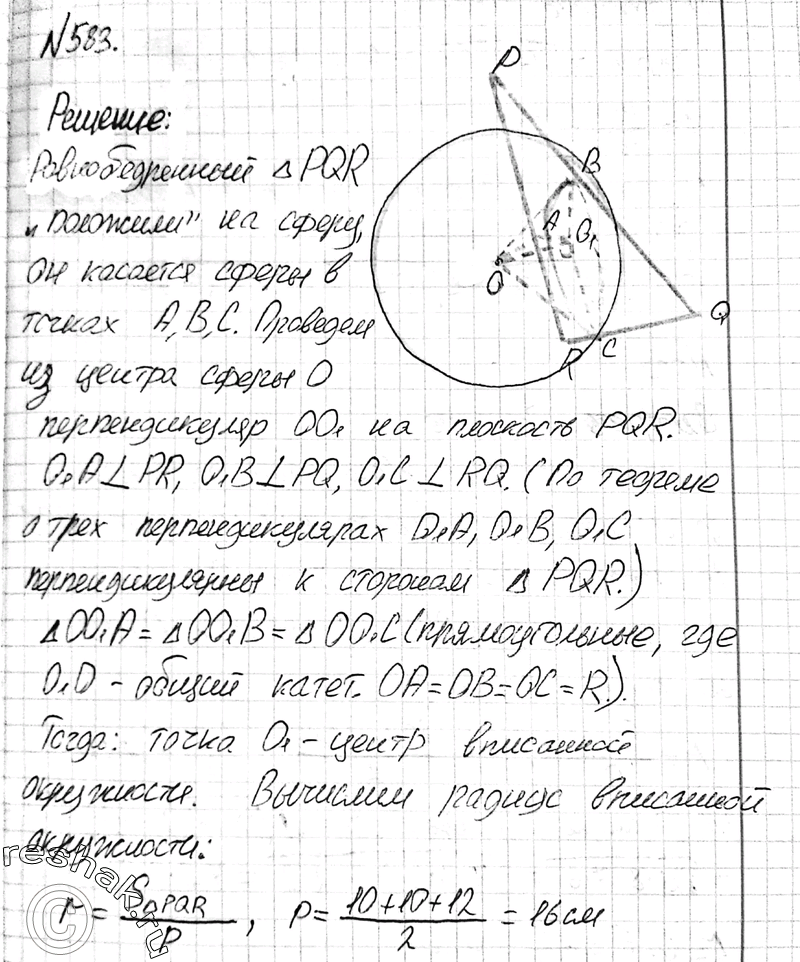 N583.
P
Решение:
Равнобедренный Δ PQR
B
„положили" на сферу,
A
O₁
он касается сферы в
O
точках A,B,C. Проведем
Q
R
C
из центра сферы O
перпендикуляр OO₁ на плоскость PQR.
O₁A⊥PR, O₁B⊥PQ, O₁C ⊥ RQ. (По теореме
о трех перпендикулярах O₁A, O₁B, O₁C
перпендикулярны к сторонам Δ PQR.)
ΔOO₁A = ΔOO₁B = ΔOO₁C (прямоугольные, где
O₁O - общий катет. OA=OB=OC=R).
Тогда: точка O₁ - центр вписанной
окружности. Вычислим радиус вписанной
окружности:
r = S_ΔPQR / P , P = (10+10+12) / 2 = 16 см
reshak.ru
©